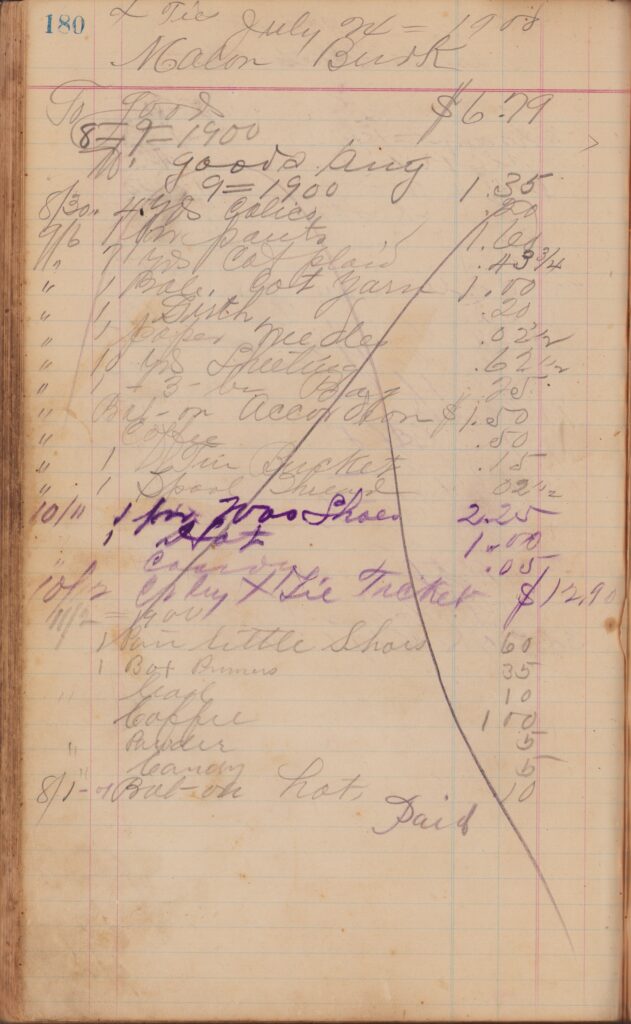 180
X Tie July 24 = 1900
Macon Busk
To good $6.79
8=9=1900
To goods Aug
9=1900 1.35
8/30 " 4 yds Calico .20
9/6 1 pr pants 1.60
" 7 yds Cot plaid .43 3/4
" 1 Bale. Cot Yarn 1.00
" 1 .20
" 1 paper Needles .02 1/2
" 10 yds Sheeting .62 1/2
" 1 - 3 - Bu Bag .25
" Bal-on Accordion $1.50
" Coffee .50
" 1 Tin Bucket .15
" 1 Spool Thread 02 1/2
10/11 1 pr Shoes 2.25
" 1 Hat 1.00
" Candy .05
10/12 X Tie Ticket $12.90
11/2 = 1900
1 Pair little Shoes 60
1 Box Primers 35
" Lead 10
Coffee 1 00
" Powder 5
" Candy 5
8/1 Bal-on hat, 10
Paid